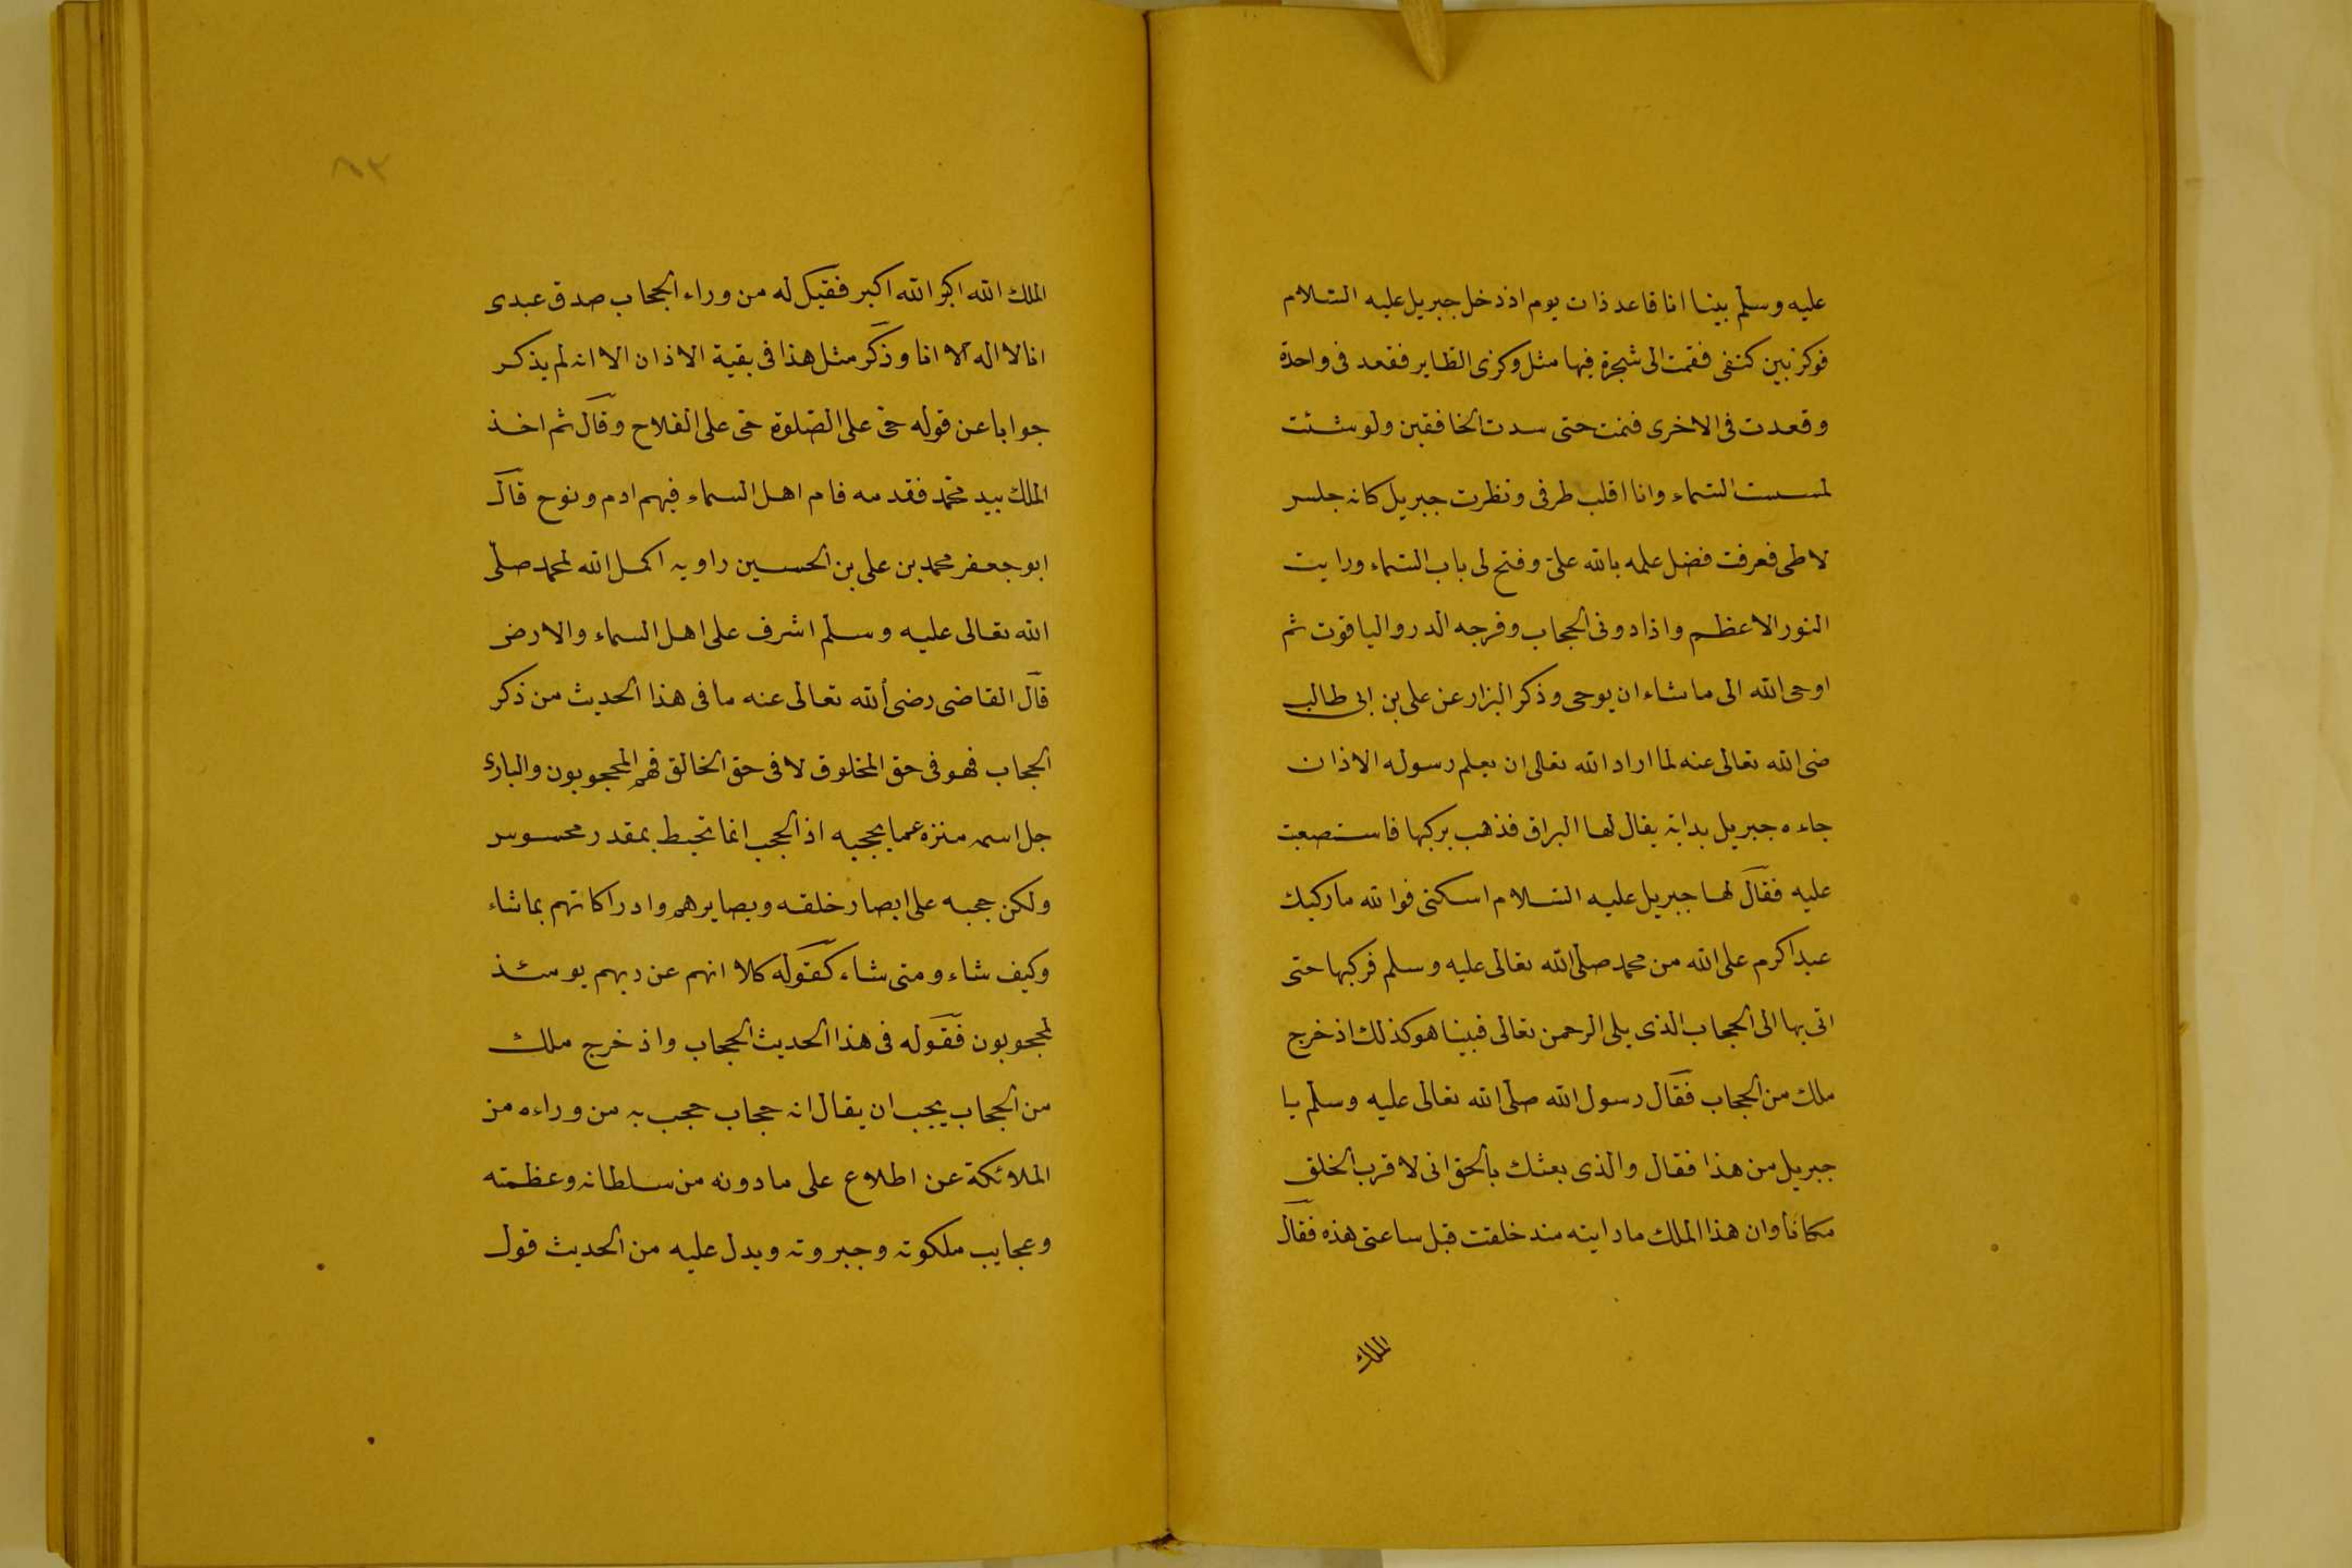 عليه وسلم بينا انا قاعد ذات يوم اذ دخل جبريل عليه السلام
فوكز بين كتفى فقمت الى شجرة فيها مثل وكرى الطاير فقعد فى واحدة
وقعدت فى الاخرى فنمت حتى سدت الخافقين ولو شئت
لمسست السماء وانا اقلب طرفى ونظرت جبريل كانه جلس
لاطى فعرفت فضل علمه بالله على وفتح لى باب السماء ورايت
النور الاعظم واذا دونى الحجاب وفرجه الدر والياقوت ثم
اوحى الله الى ما شاء ان يوحى وذكر البزار عن على بن ابى طالب
ضى الله تعالى عنه لما اراد الله تعالى ان يعلم رسوله الاذان
جاءه جبريل بدابة يقال لها البراق فذهب يركبها فاستصعبت
عليه فقال لها جبريل عليه السلام اسكنى فوالله ما ركبك
عبد اكرم على الله من محمد صلى الله تعالى عليه وسلم فركبها حتى
اتى بها الى الحجاب الذى يلى الرحمن تعالى فبينا هو كذلك اذ خرج
ملك من الحجاب فقال رسول الله صلى الله تعالى عليه وسلم يا
جبريل من هذا فقال والذى بعثك بالحق انى لاقرب الخلق
مكانا وان هذا الملك ما رايته منذ خلقت قبل ساعتى هذه فقال
الملك
٨٣
الملك الله اكبر الله اكبر فقيل له من وراء الحجاب صدق عبدى
انا لا اله الا انا وذكر مثل هذا فى بقية الاذان الا انه لم يذكر
جوابا عن قوله حى على الصلوة حى على الفلاح وقال ثم اخذ
الملك بيد محمد فقدمه فام اهل السماء فيهم ادم ونوح قال
ابو جعفر محمد بن على بن الحسين راويه اكمل الله لمحمد صلى
الله تعالى عليه وسلم اشرف على اهل السماء والارض
قال القاضى رضى الله تعالى عنه ما فى هذا الحديث من ذكر
الحجاب فهو فى حق المخلوق لا فى حق الخالق فهم المحجوبون والبارئ
جل اسمه منزه عما يحجبه اذ الحجب انما تحيط بمقدر محسوس
ولكن حجبه على ابصار خلقه وبصايرهم وادراكاتهم بما شاء
وكيف شاء ومتى شاء كقوله كلا انهم عن ربهم يومئذ
لمحجوبون فقوله فى هذا الحديث الحجاب واذ خرج ملك
من الحجاب يجب ان يقال انه حجاب حجب به من وراءه من
الملائكة عن اطلاع على ما دونه من سلطانه وعظمته
وعجايب ملكوته وجبروته ويدل عليه من الحديث قول